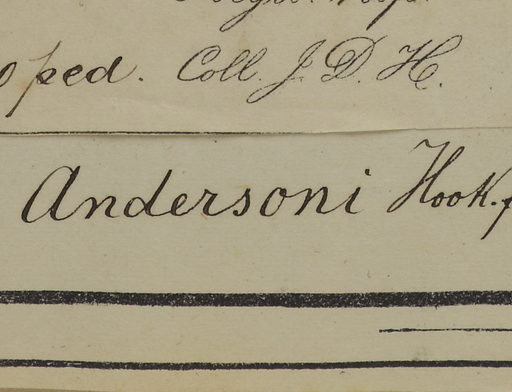 ped. Coll. J. D. H.
Andersoni Hook. f